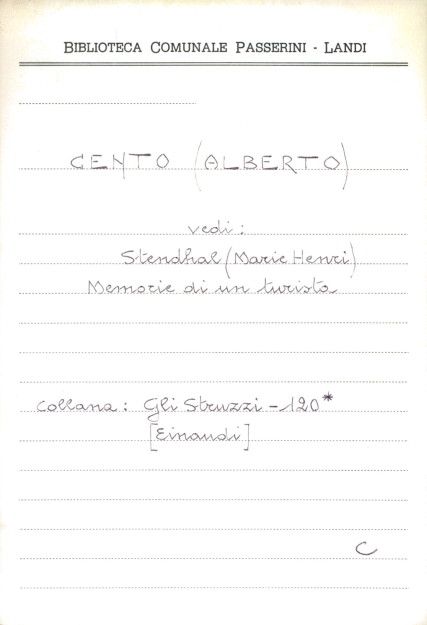 BIBLIOTECA COMUNALE PASSERINI - LANDI
CENTO (ALBERTO)
vedi:
Stendhal (Marie Henri)
Memorie di un turista
Collana: Gli Struzzi - 120*
[Einaudi]
C